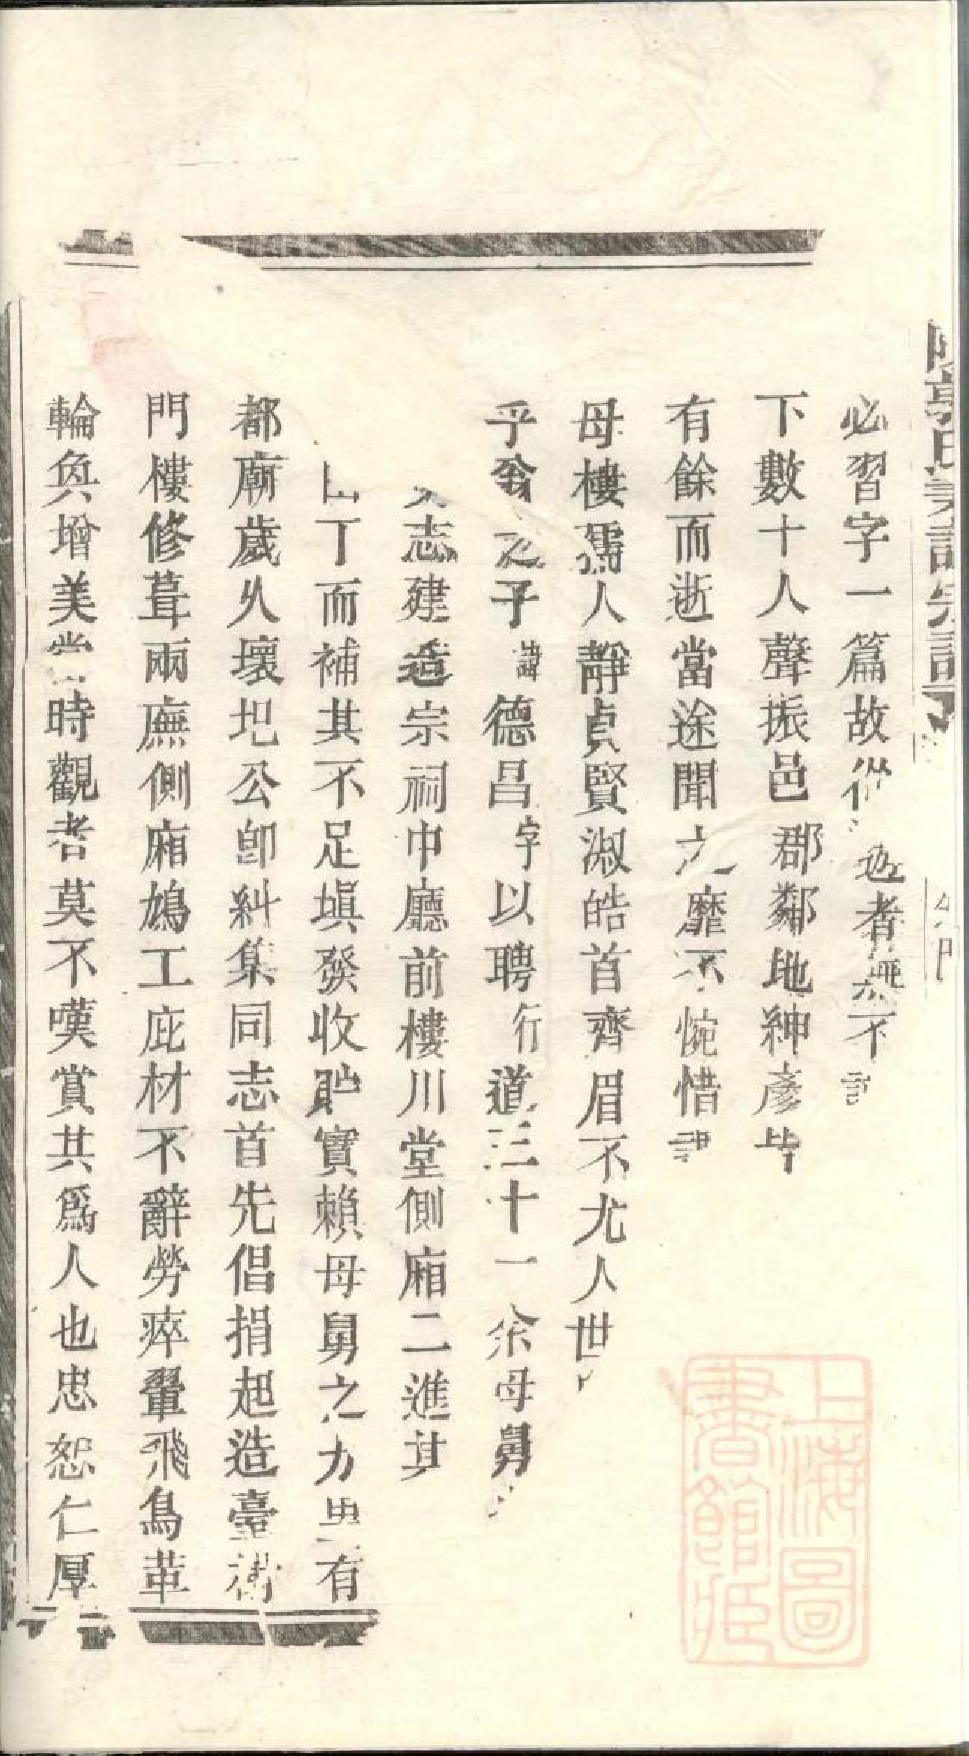 郭氏
必習字一篇故從遊者無不
下數十人聲振邑郡鄰地紳彥皆
有餘而逝當途聞之靡不惋惜
母樓孺人靜貞賢淑皓首齊眉不尤人世
乎翁之子諱德昌字以聘行道三十一余母舅
志建造宗祠中廳前樓川堂側廂二進其
丁而補其不足塡發收貯實賴母舅之力里有
都廟歲久壞圯公卽糾集同志首先倡捐起造臺
門樓修葺兩廡側廂鳩工庇材不辭勞瘁翬飛鳥革
輪奐增美當時觀者莫不嘆賞其爲人也忠恕仁厚
上海圖書館藏